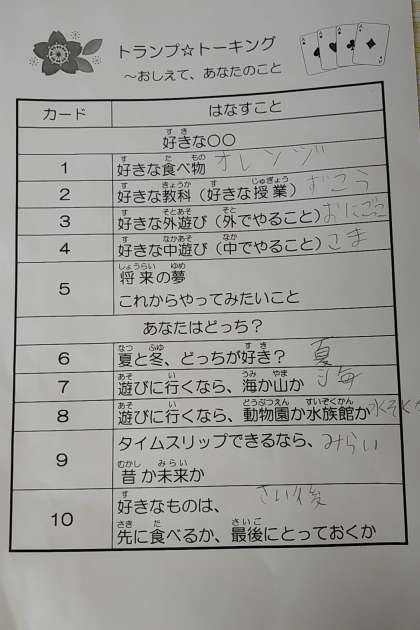 トランプ☆トーキング
～おしえて、あなたのこと
カード はなすこと
好きな〇〇
1 好きな食べ物 オレンジ
2 好きな教科（好きな授業） ずこう
3 好きな外遊び（外でやること） おにごこ
4 好きな中遊び（中でやること） こま
5 将来の夢
これからやってみたいこと
あなたはどっち？
6 夏と冬、どっちが好き？ 夏
7 遊びに行くなら、海か山か 海
8 遊びに行くなら、動物園か水族館か
9 タイムスリップできるなら、 みらい
昔か未来か
10 好きなものは、 さい後
先に食べるか、最後にとっておくか